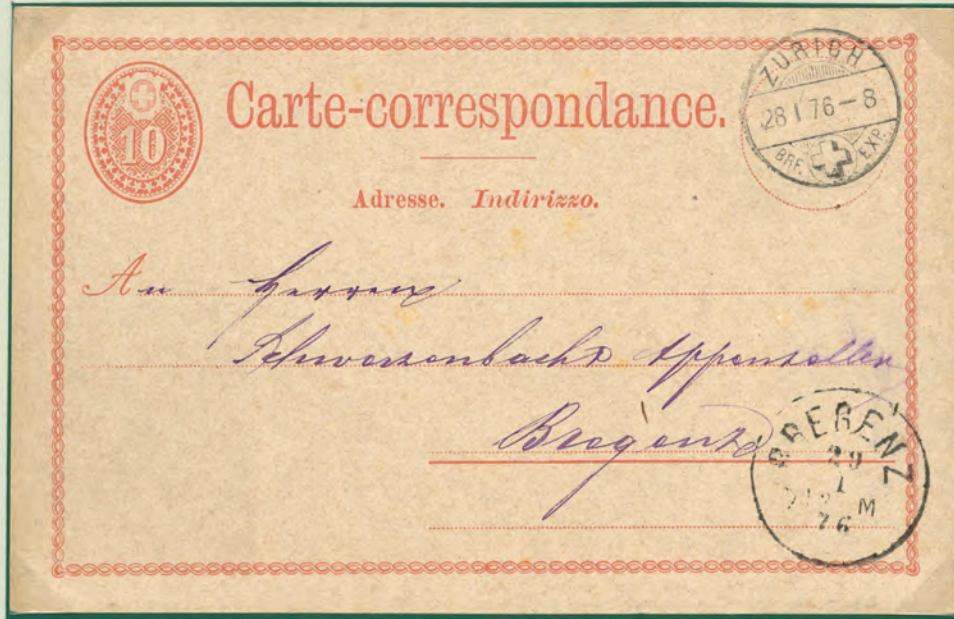 Carte-correspondance.
10
ZÜRICH
28 I 76 – 8
BRF. EXP.
Adresse. Indirizzo.
An Herren
Schwarzenbach & Appenzeller
Bregenz
BREGENZ
29
1
M
76